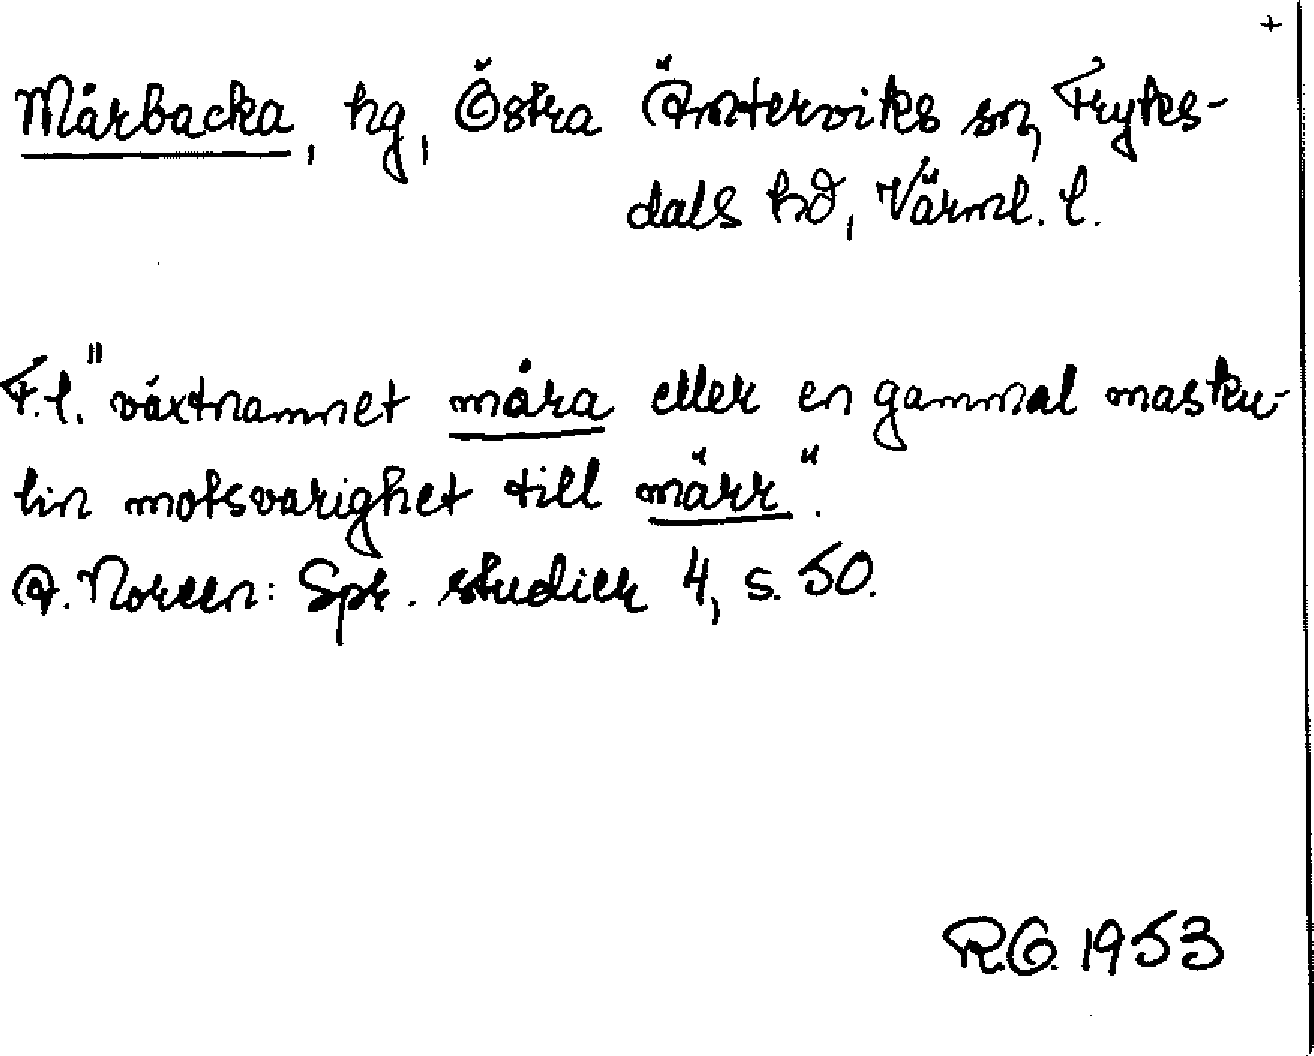 +
Mårbacka, hg, Östra Ämterviks sn, Fryks-
dals hd, Värml. l.
F.l. "växtnamnet måra eller en gammal masku-
lin motsvarighet till märr".
A. Noreen: Spr. studier 4, s. 50.
R.O. 1953